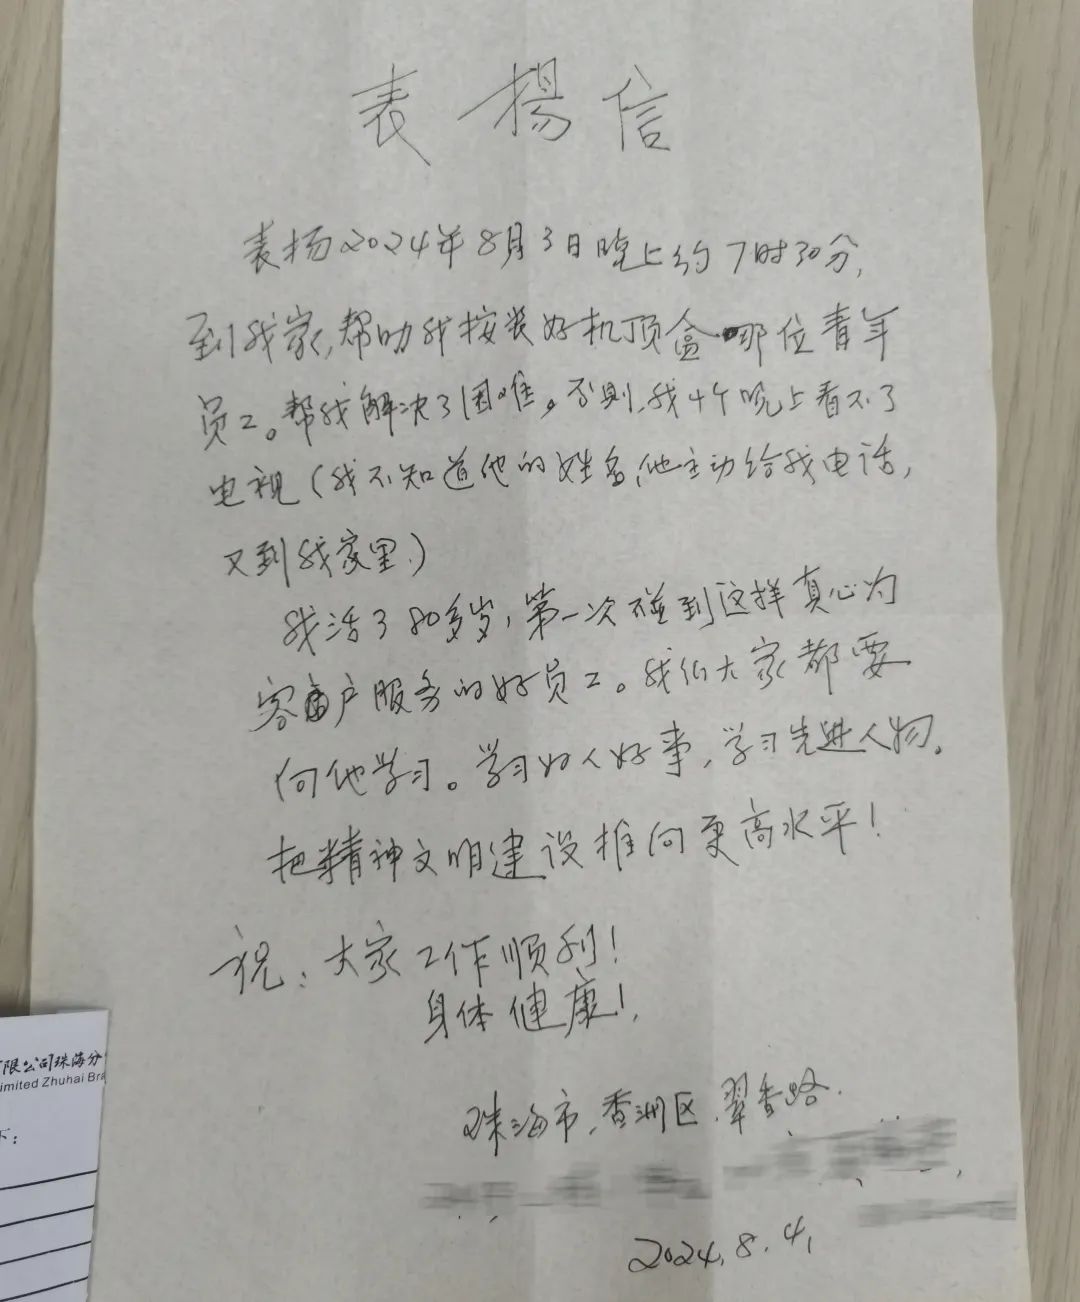 表揚信
表扬2024年8月3日晚上约7时30分,
到我家,帮助我按装好机顶盒哪位青年
员工。帮我解决了困难。否则,我4个晚上看不了
电视(我不知道他的姓名,他主动给我电话,
又到我家里.)
我活了80多岁,第一次碰到这样真心为
客户服务的好员工。我们大家都要
向他学习。学习好人好事,学习先进人物.
把精神文明建设推向更高水平!
祝:大家工作顺利!
身体健康!
珠海市,香洲区,翠香路.
2024.8.4,
限公司珠海分
imited Zhuhai Bra
下: